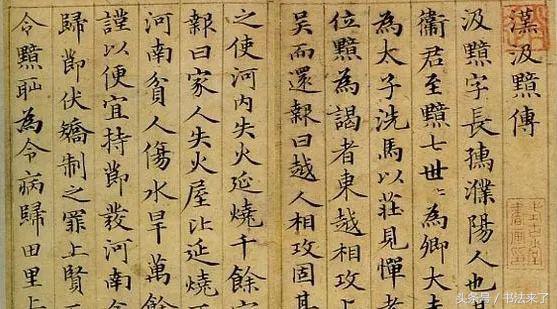 漢汲黯傳
汲黯字長孺濮陽人也其
衛君至黯七世〻為卿大夫
為太子洗馬以莊見憚孝
位黯為謁者東越相攻上
吳而還報曰越人相攻固其
之使河内失火延燒千餘家
報曰家人失火屋比延燒不
河南貧人傷水旱萬餘
謹以便宜持節發河南倉
歸節伏矯制之罪上賢而
令黯恥為令病歸田里上
头条号 / 书法来了